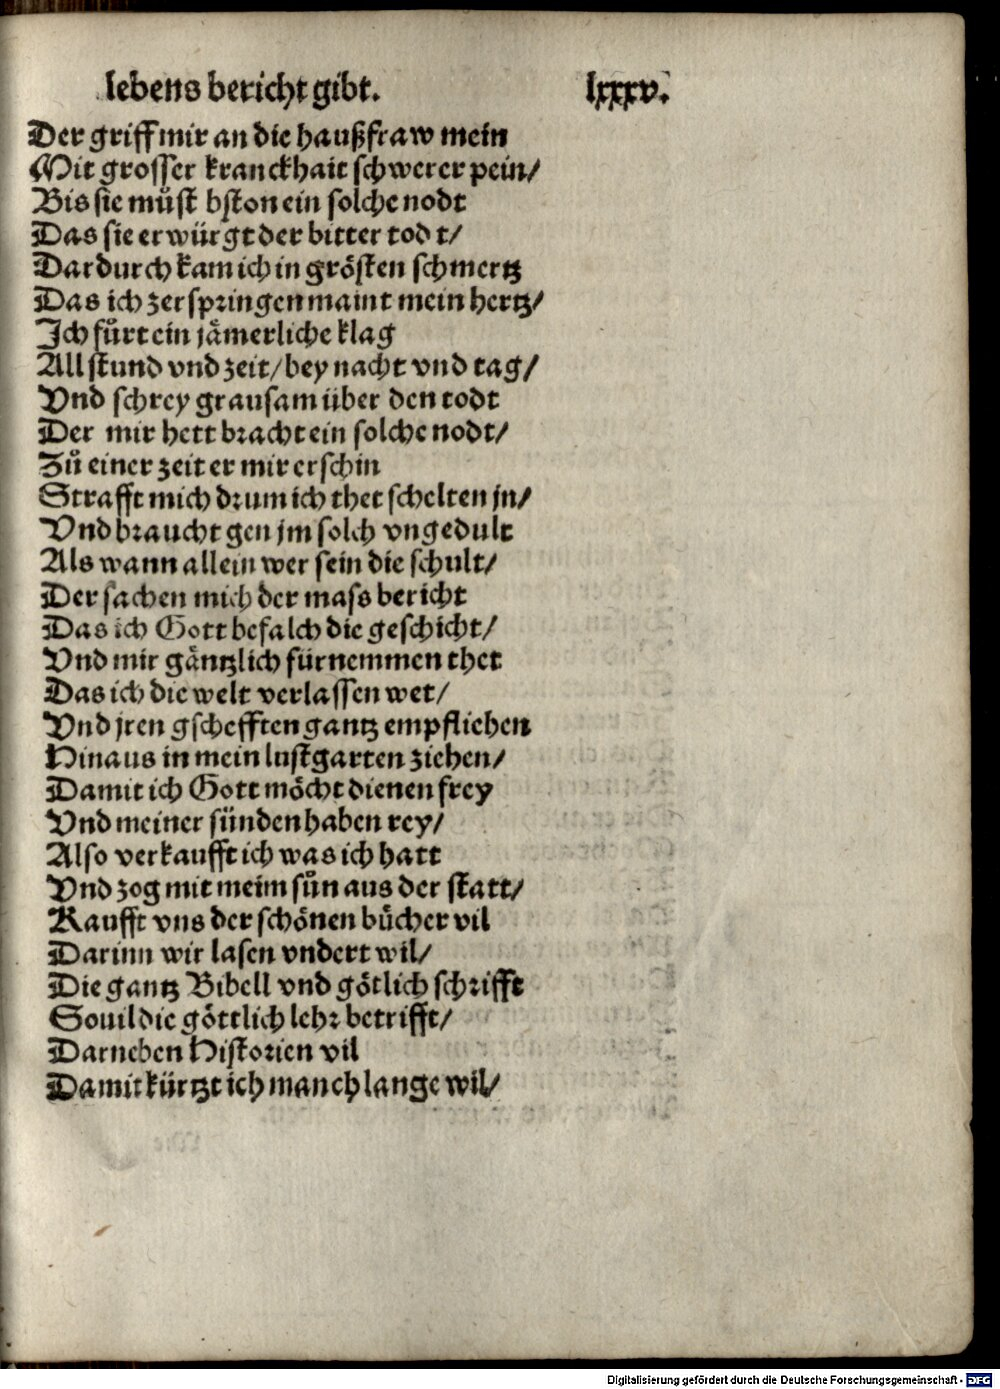 lebens bericht gibt. lxxxv.
Der griff mir an die haußfraw mein
Mit grosser kranckhait schwerer pein/
Bis sie muͤst bston ein solche nodt
Das sie erwürgt der bitter todt/
Dardurch kam ich in groͤsten schmertz
Das ich zerspringen maint mein hertz/
Ich fuͤrt ein jaͤmerliche klag
All stund vnd zeit/ bey nacht vnd tag/
Vnd schrey grausam über den todt
Der mir hett bracht ein solche nodt/
Zuͦ einer zeit er mir erschin
Strafft mich drum ich thet schelten jn/
Vnd braucht gen jm solch vngedult
Als wann allein wer sein die schult/
Der sachen mich der mass bericht
Das ich Gott befalch die geschicht/
Vnd mir gaͤntzlich fürnemmen thet
Das ich die welt verlassen wet/
Vnd jren gschefften gantz empfliehen
Hinaus in mein lustgarten ziehen/
Damit ich Gott moͤcht dienen frey
Vnd meiner sünden haben rey/
Also verkaufft ich was ich hatt
Vnd zog mit meim suͦn aus der statt/
Kaufft vns der schoͤnen buͤcher vil
Darinn wir lasen vndert wil/
Die gantz Bibell vnd goͤtlich schrifft
Souil die goͤttlich lehr betrifft/
Darneben Historien vil
Damit kürtzt ich manch lange wil/
Digitalisierung gefördert durch die Deutsche Forschungsgemeinschaft - DFG